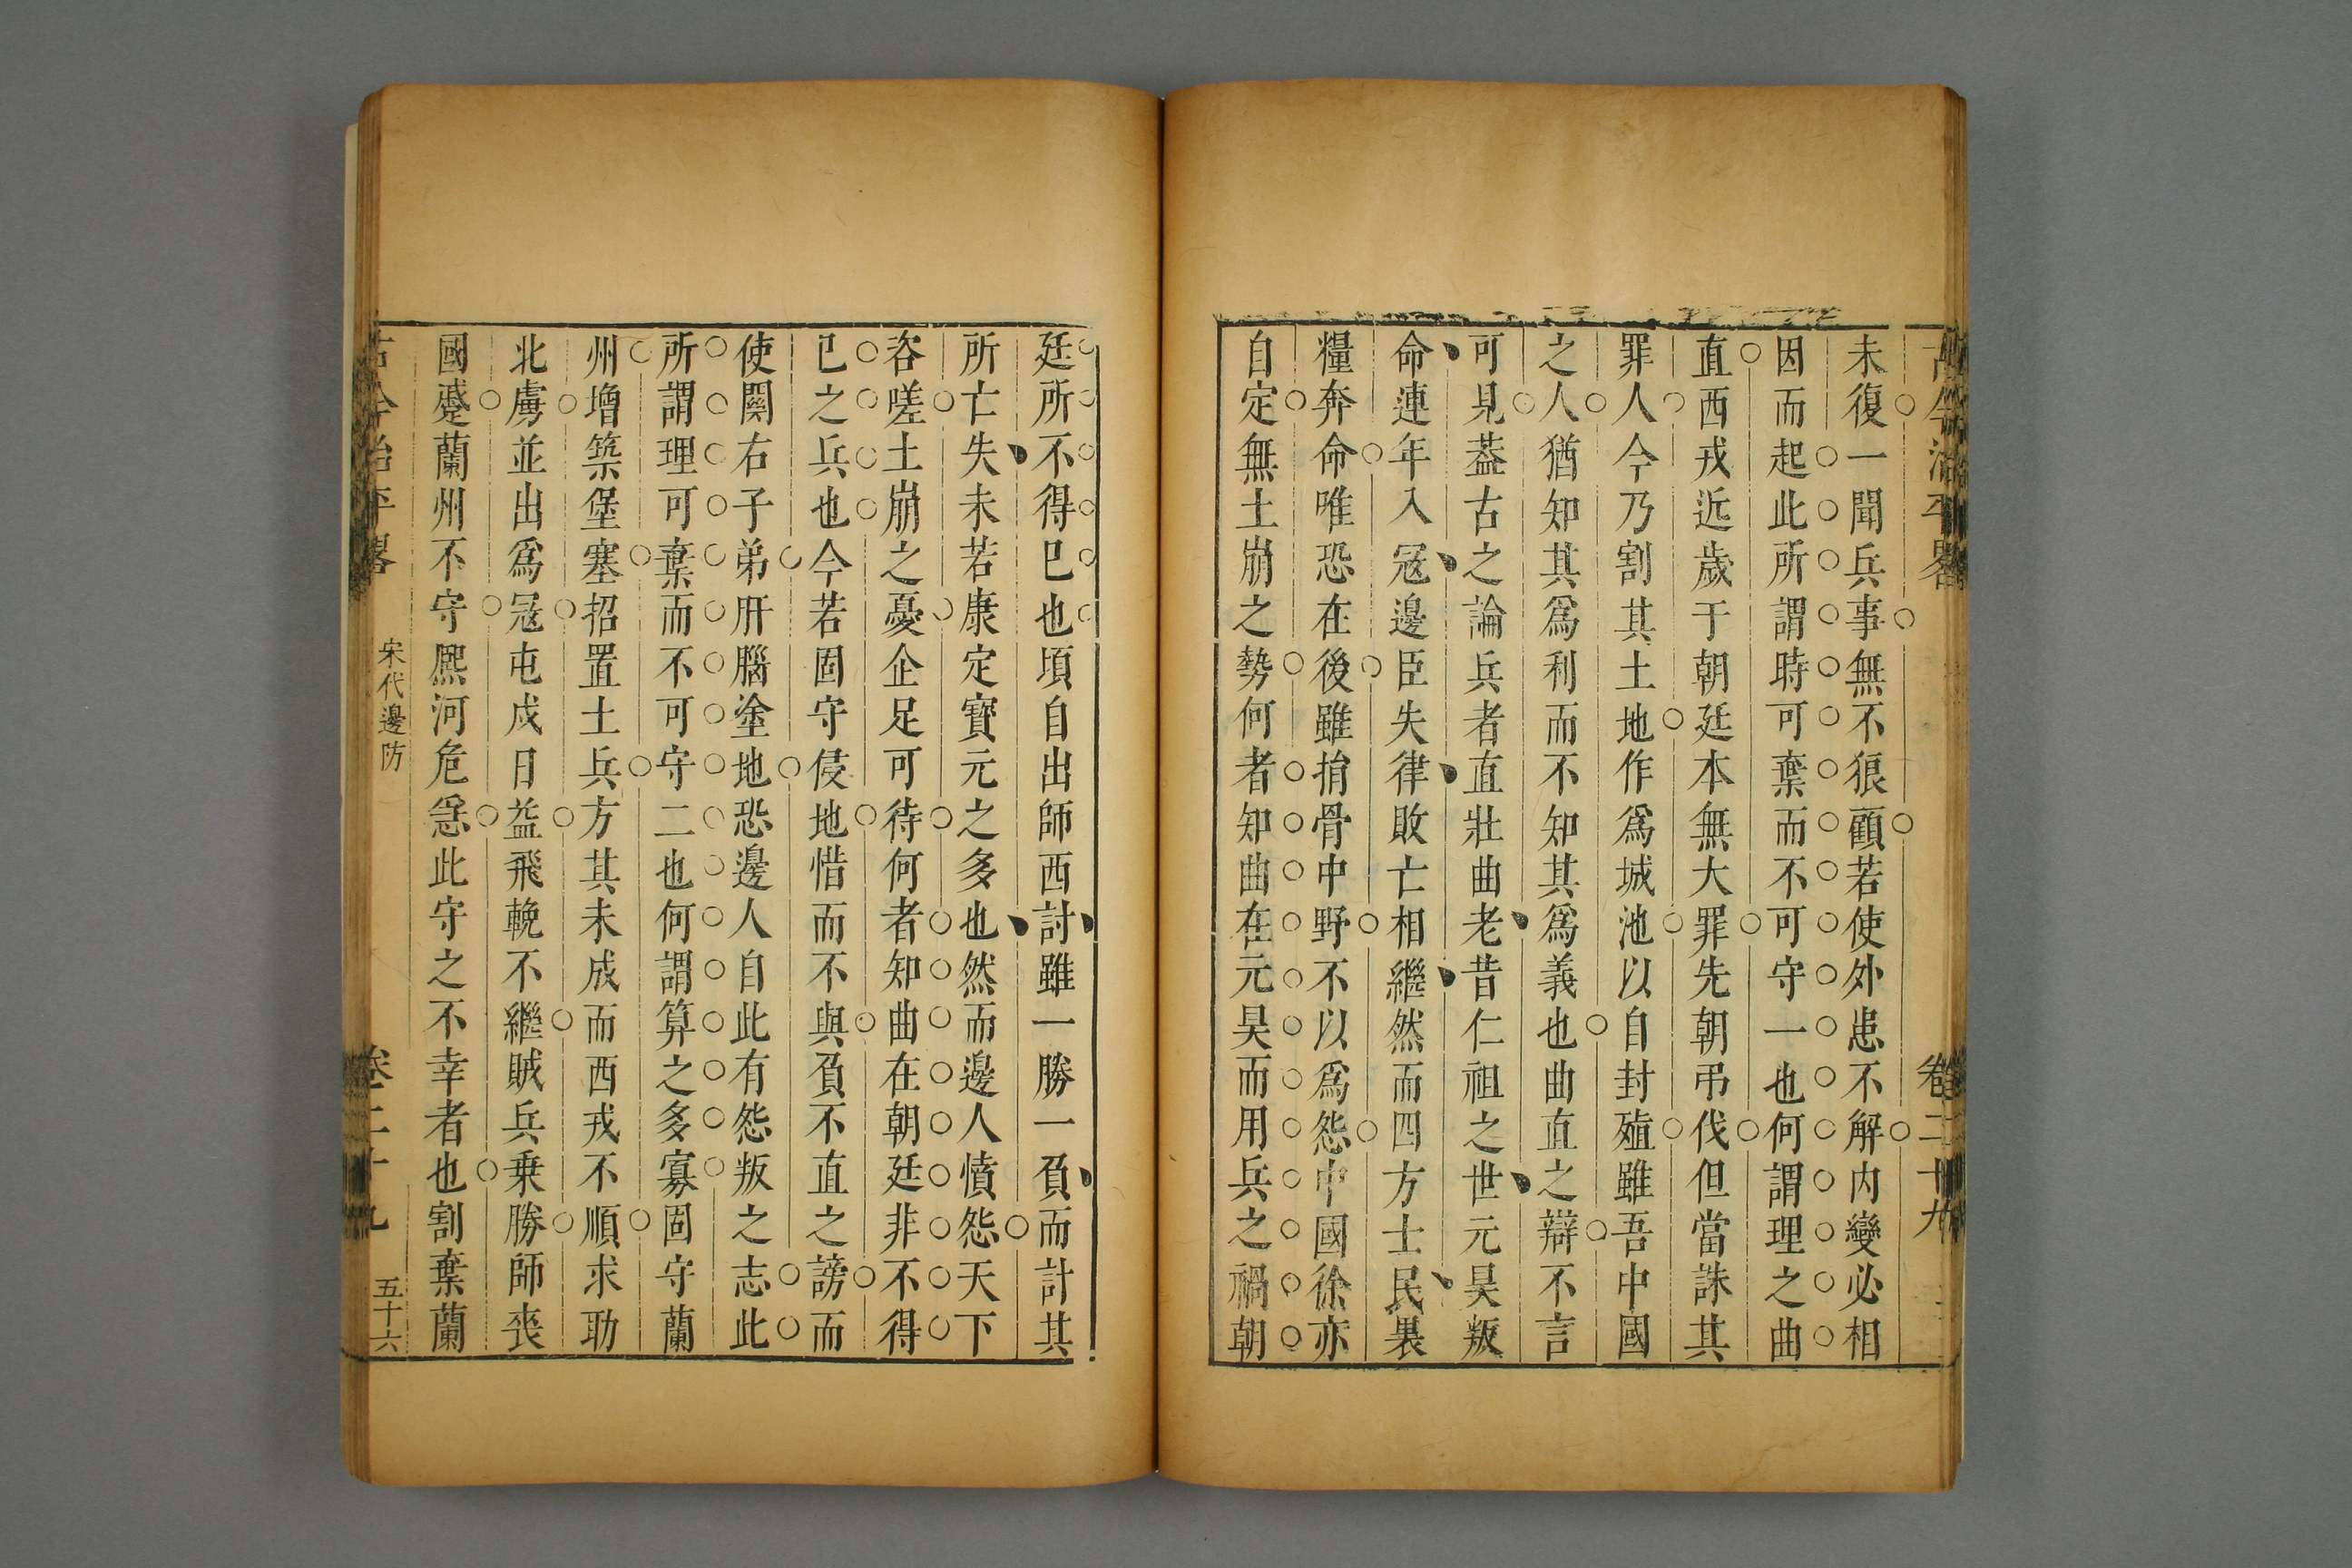 古今治平畧
卷二十九
未復一聞兵事無不狼顧若使外患不解内變必相
因而起此所謂時可棄而不可守一也何謂理之曲
直西戎近歲于朝廷本無大罪先朝弔伐但當誅其
罪人今乃割其土地作爲城池以自封殖雖吾中國
之人猶知其爲利而不知其爲義也曲直之辯不言
可見葢古之論兵者直壯曲老昔仁祖之世元昊叛
命連年入冦邊臣失律敗亡相繼然而四方士民裹
糧奔命唯恐在後雖捐骨中野不以爲怨中國徐亦
自定無土崩之勢何者知曲在元昊而用兵之禍朝
廷所不得巳也頃自出師西討雖一勝一負而計其
所亡失未若康定寶元之多也然而邊人憤怨天下
咨嗟土崩之憂企足可待何者知曲在朝廷非不得
巳之兵也今若固守侵地惜而不與負不直之謗而
使關右子弟肝腦塗地恐邊人自此有怨叛之志此
所謂理可棄而不可守二也何謂算之多寡固守蘭
州增築堡塞招置土兵方其未成而西戎不順求助
北虜並出爲冦屯戍日益飛輓不繼賊兵乗勝師喪
國蹙蘭州不守熙河危急此守之不幸者也割棄蘭
古今治平畧
宋代邊防
卷二十九
五十六